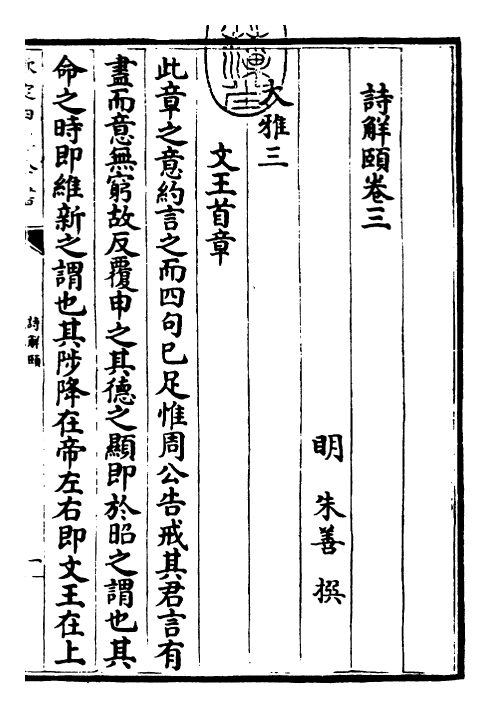 詩解頤卷三
明 朱善 撰
大雅三
文王首章
此章之意約言之而四句已足惟周公告戒其君言有
盡而意無窮故反覆申之其德之顯即於昭之謂也其
命之時即維新之謂也其陟降在帝左右即文王在上
詩解頤
一